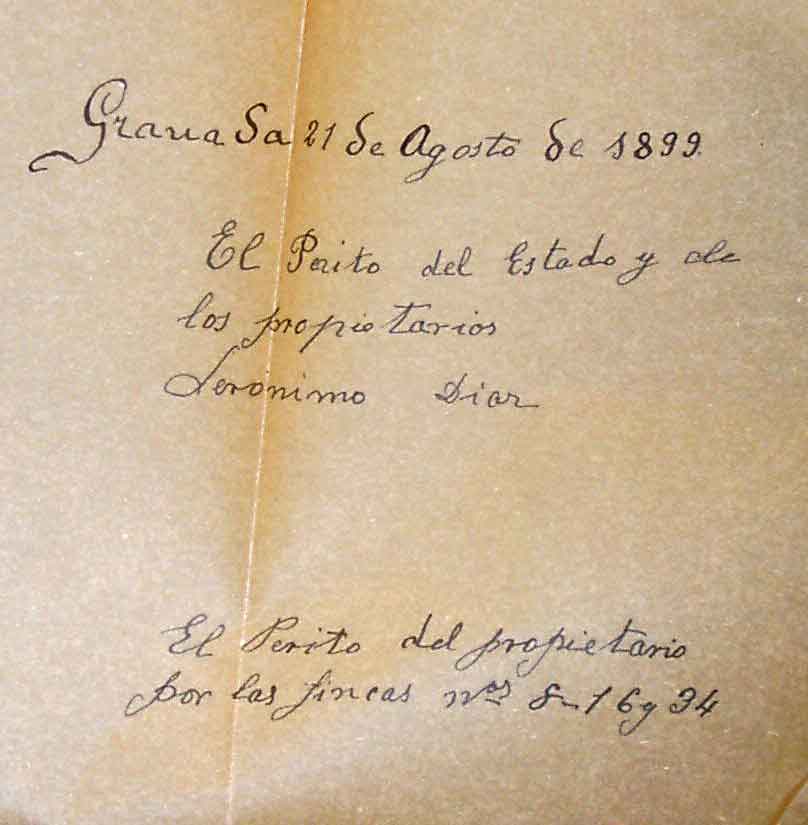 Granada 21 de Agosto de 1899.
El Perito del Estado y de
los propietarios
Jeronimo Diaz
El Perito del propietario
por las fincas nos 8-16 y 34